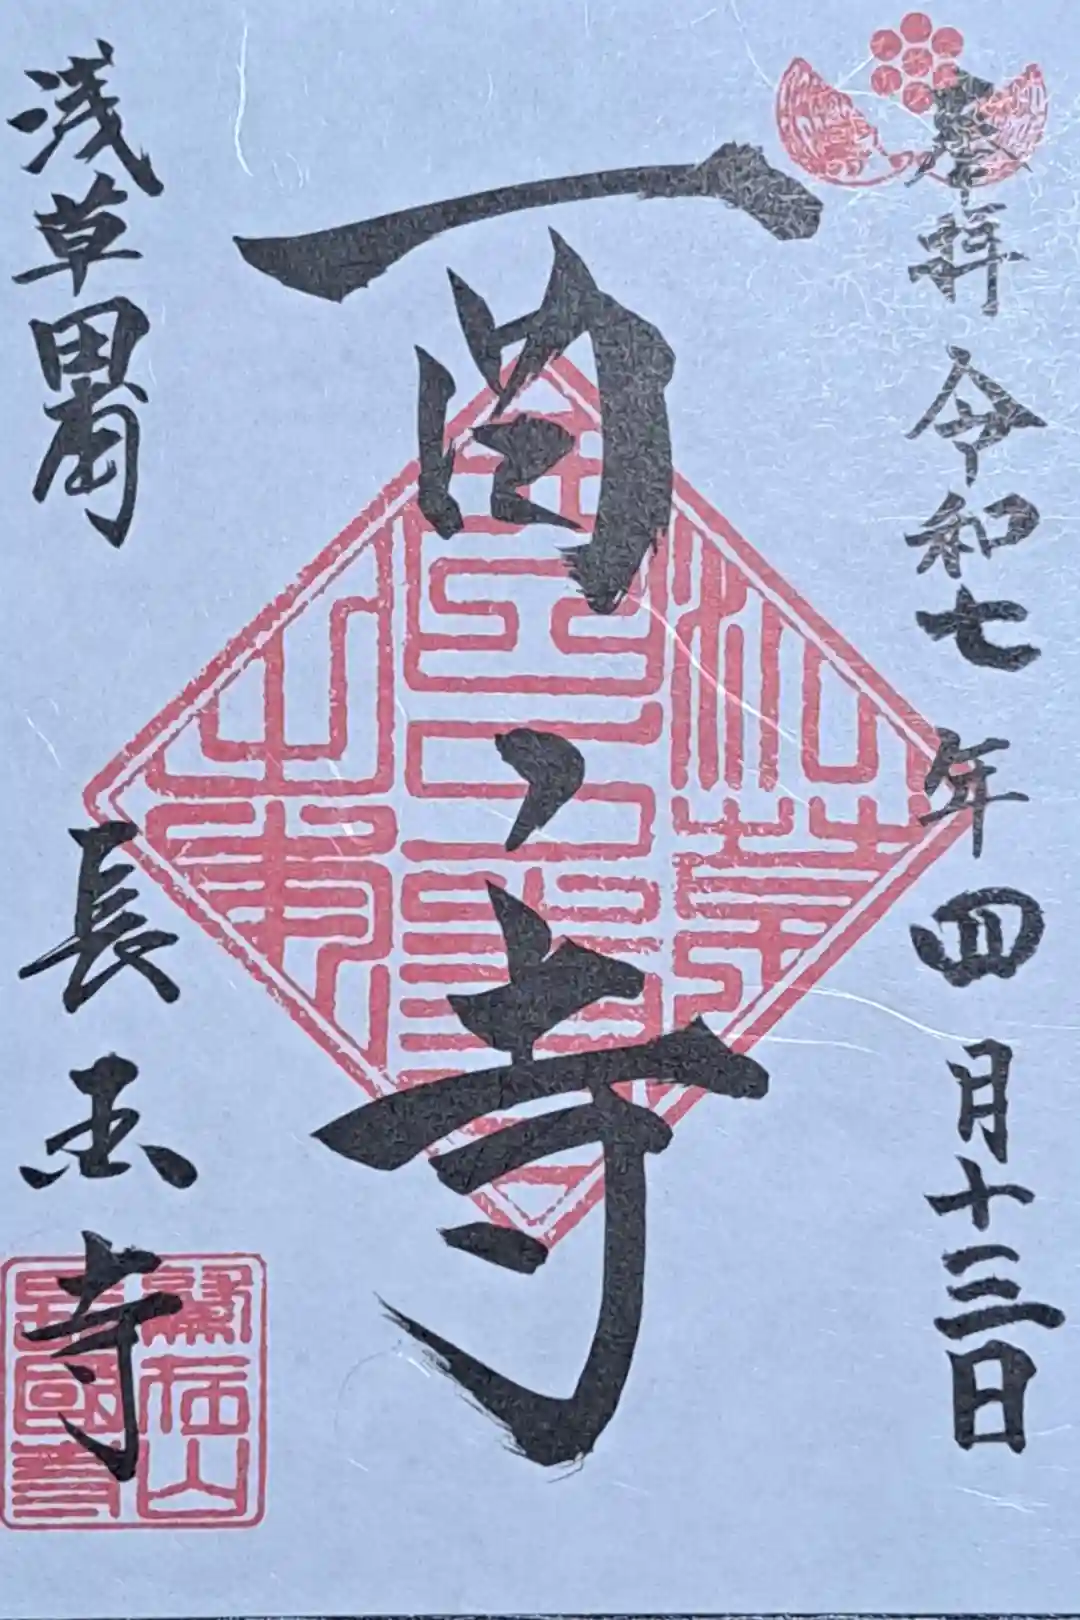 奉拝 令和七年四月十三日
酉ノ寺
浅草田圃 長国寺
鷲在山
長國寺